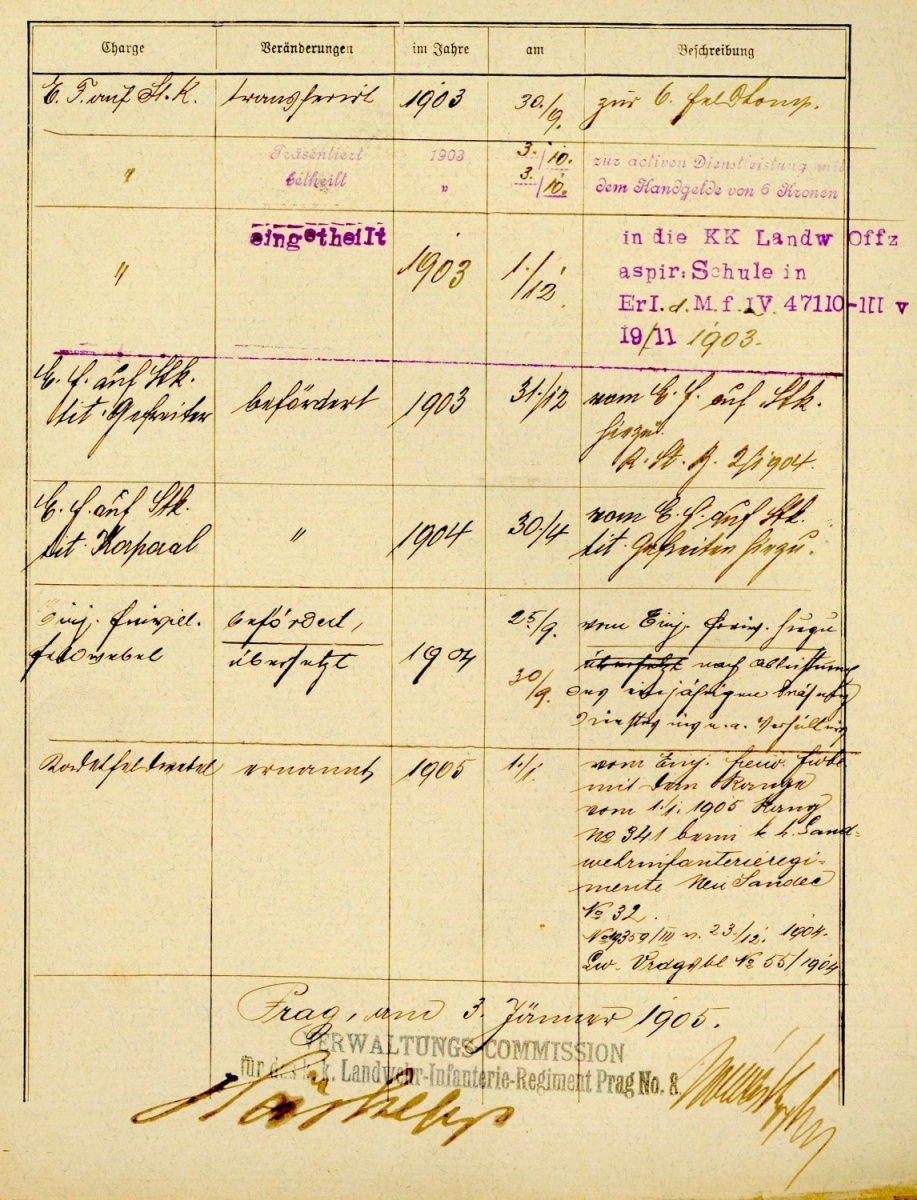 Charge Veränderungen im Jahre am Beschreibung
E. F. auf St. K. transferirt 1903 30./9. zur 6. Feldkomp.
Präsentiert 1903 3./10. zur activen Dienstleistung mit
" betheilt " 3./10. dem Handgelde von 6 Kronen
eingetheilt in die KK Landw Offz
" 1903 1./12. aspir: Schule in
Erl. d. M. f. LV. 47110-III v
19/11 1903.
E. f. auf Stk. befördert 1903 31./12 vom E. f. auf Stk.
tit. Gefreiter hiezu.
R. St. B. 2/1904.
E. f. auf Stk. " 1904 30./4 vom E. f. auf Stk.
tit. Korporal tit. Gefreiten hiezu.
Einj. freiwill. befördert, 1904 25/9. vom Einj. freiw. hiezu
feldwebel übersetzt 30/9. übersetzt nach Ableistung
des einjährigen Präsenz
Dienstes in
Kadetfeldwebel ernannt 1905 1./1. vom Einj. freiw. Fwbl
mit dem Range
vom 1./1. 1905 Rang
No 341 beim k. k. Land-
wehrinfanterieregi-
mente Neu Sandec
No 32.
359/III v. 23./12. 1904.
Lw. Vdgsbl No 55/1904
Prag, am 3. Jänner 1905.
VERWALTUNGS-COMMISSION
für das k.k. Landwehr-Infanterie-Regiment Prag No. 8